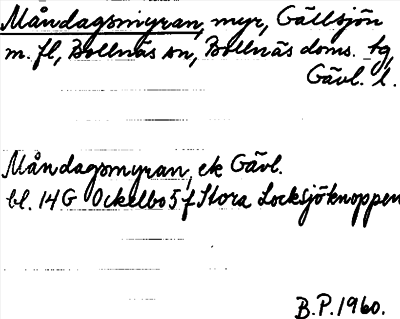 Måndagsmyran, myr, Gällsjön
m. fl, Bollnäs sn, Bollnäs doms. tg,
Gävl. l.
Måndagsmyran, ek Gävl.
bl. 14G Ockelbo 5 f Stora Locksjöknoppen
B.P. 1960.